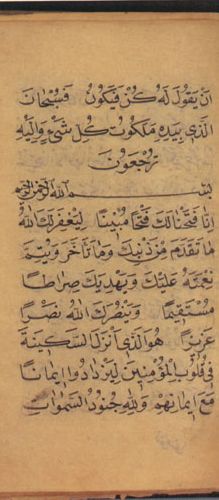 اَنْ يَقُولَ لَهُ كُنْ فَيَكُونُ فَسُبْحَانَ
الَّذِي بِيَدِهِ مَلَكُوتُ كُلِّ شَيْءٍ وَاِلَيْهِ
تُرْجَعُونَ
بِسْمِ اللهِ الرَّحْمٰنِ الرَّحِيمِ
اِنَّا فَتَحْنَا لَكَ فَتْحًا مُبِينًا لِيَغْفِرَ لَكَ اللهُ
مَا تَقَدَّمَ مِنْ ذَنْبِكَ وَمَا تَأَخَّرَ وَيُتِمَّ
نِعْمَتَهُ عَلَيْكَ وَيَهْدِيَكَ صِرَاطًا
مُسْتَقِيمًا وَيَنْصُرَكَ اللهُ نَصْرًا
عَزِيزًا هُوَ الَّذِي اَنْزَلَ السَّكِينَةَ
فِي قُلُوبِ الْمُؤْمِنِينَ لِيَزْدَادُوا اِيمَانًا
مَعَ اِيمَانِهِمْ وَلِلّٰهِ جُنُودُ السَّمٰوَاتِ